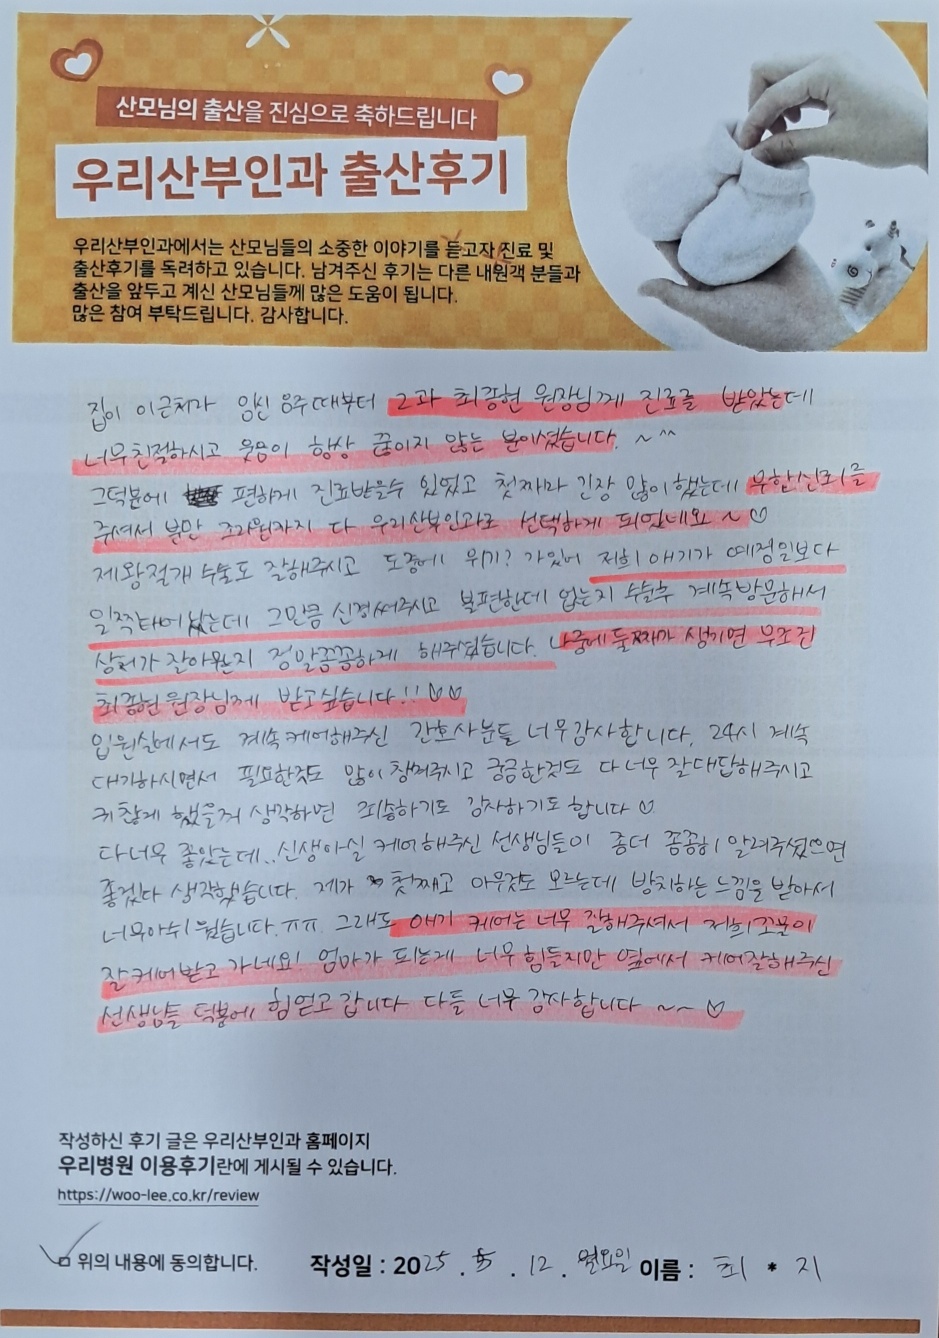 산모님의 출산을 진심으로 축하드립니다
우리산부인과 출산후기
우리산부인과에서는 산모님들의 소중한 이야기를 듣고자 진료 및
출산후기를 독려하고 있습니다. 남겨주신 후기는 다른 내원객 분들과
출산을 앞두고 계신 산모님들께 많은 도움이 됩니다.
많은 참여 부탁드립니다. 감사합니다.
집이 이근처라 임신 8주때부터 2과 최종현 원장님께 진료를 받았는데
너무친절하시고 웃음이 항상 끊이지 않는 분이셨습니다. ~^^
그덕분에 편하게 진료받을수 있었고 첫째라 긴장 많이했는데 무한신뢰를
주셔서 분만 조리원까지 다 우리산부인과로 선택하게 되었네요 ~♡
제왕절개 수술도 잘해주시고 도중에 위기? 가있어 저희 애기가 예정일보다
일찍태어났는데 그만큼 신경써주시고 불편한데 없는지 수술후 계속방문해서
상처가 잘아문지 정말꼼꼼하게 해주셨습니다. 나중에 둘째가 생기면 무조건
최종현원장님께 받고싶습니다!! ♡♡
입원실에서도 계속케어해주신 간호사분들 너무감사합니다. 24시 계속
대기하시면서 필요한것도 많이 챙겨주시고 궁금한것도 다 너무 잘대답해주시고
귀찮게 했을거 생각하면 죄송하기도 감사하기도합니다 ♡
다너무 좋았는데.. 신생아실 케어해주신 선생님들이 좀더 꼼꼼히 알려주셨으면
좋겠다 생각했습니다. 제가 첫째고 아무것도 모르는데 방치하는느낌을 받아서
너무아쉬웠습니다.ㅠㅠ. 그래도 애기 케어는 너무 잘해주셔서 저희조문이
잘케어받고 가네요! 엄마가 되는게 너무힘들지만 옆에서 케어잘해주신
선생님들 덕분에 힘얻고갑니다 다들 너무 감사합니다 ~~♡
작성하신 후기 글은 우리산부인과 홈페이지
우리병원 이용후기란에 게시될 수 있습니다.
https://woo-lee.co.kr/review
위의 내용에 동의합니다. 작성일 : 2025 . 5 . 12 . 월요일 이름 : 최 * 지